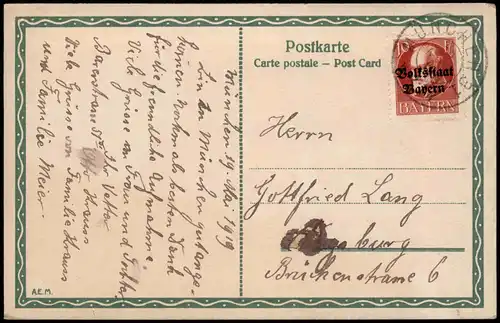 Postkarte
Carte postale – Post Card
MÜNCHEN
10
Volksstaat
Bayern
BAYERN
Herrn
Gottfried Lang
Augsburg
Brückenstrasse 6
München 29. Mai 1919
bin in München gut ange-
kommen. Nochmals besten Dank
für die freundliche Aufnahme
Viele Grüsse an Frau und
Ihr Vetter
Otto Krauss
Viele Grüsse von Familie Krauss
und Familie Meier
A.E.M.